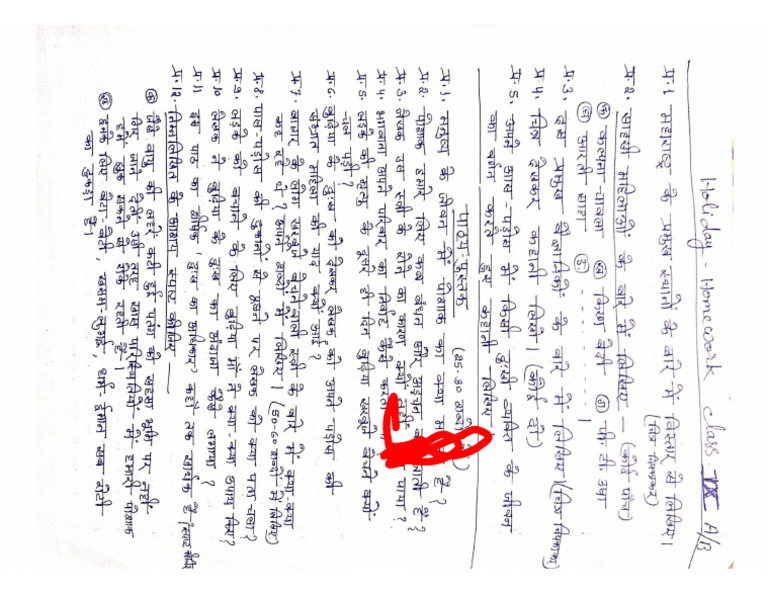 Holiday - Homework class IX A/B
प्र.1. महाराष्ट्र के प्रमुख स्थानों के बारे में विस्तार से लिखिए।
(चित्र चिपकाकर)
प्र.2. साहसी महिलाओं के बारे में लिखिए — (कोई पाँच)
क कल्पना-चावला ख किरण बेदी ग पी. टी. उषा
घ आरती साहा ङ . . . . . . . . . . ।
प्र.3. दस प्रमुख वैज्ञानिकों के बारे में लिखिए। (चित्र चिपकाकर)
प्र.4. चित्र देखकर कहानी लिखो। (कोई दो)
प्र.5. अपने आस-पड़ोस में किसी दुःखी व्यक्ति के जीवन
का वर्णन करते हुए कहानी लिखिए।
पाठ्य-पुस्तक (25-30 शब्दों
प्र.1. मनुष्य के जीवन में पोशाक का क्या म है?
प्र.2. पोशाक हमारे लिए कब बंधन और अड़चन बन जाती है?
प्र.3. लेखक उस स्त्री के रोने का कारण क्यों नहीं पाया?
प्र.4. भगवाना अपने परिवार का निर्वाह कैसे करता
प्र.5. लड़के की मृत्यु के दूसरे ही दिन बुढ़िया खरबूजे बेचने क्यों
चल पड़ी?
प्र.6. बुढ़िया के दुःख को देखकर लेखक को अपने पड़ोस की
संभ्रांत महिला की याद क्यों आई?
प्र.7. बाजार के लोग खरबूजे बेचनेवाली स्त्री के बारे में क्या-क्या
कह रहे थे? अपने शब्दों में लिखिए। (50-60 शब्दों में लिखिए)
प्र.8. पास-पड़ोस की दुकानों से पूछने पर लेखक को क्या पता चला?
प्र.9. लड़के को बचाने के लिए बुढ़िया माँ ने क्या-क्या उपाय किए?
प्र.10 लेखक ने बुढ़िया के दुःख का अंदाजा कैसे लगाया?
प्र.11. इस पाठ का शीर्षक 'दुःख का अधिकार' कहाँ तक सार्थक है? स्पष्ट कीजिए
प्र.12. निम्नलिखित के आशय स्पष्ट कीजिए —
क जैसे वायु की लहरें कटी हुई पतंग को सहसा भूमि पर नहीं
गिर जाने देतीं उसी तरह खास परिस्थितियों में हमारी पोशाक
हमें झुक सकने से रोके रहती है।
ख इनके लिए बेटा-बेटी, खसम-लुगाई, धर्म-ईमान सब रोटी
का टुकड़ा है।